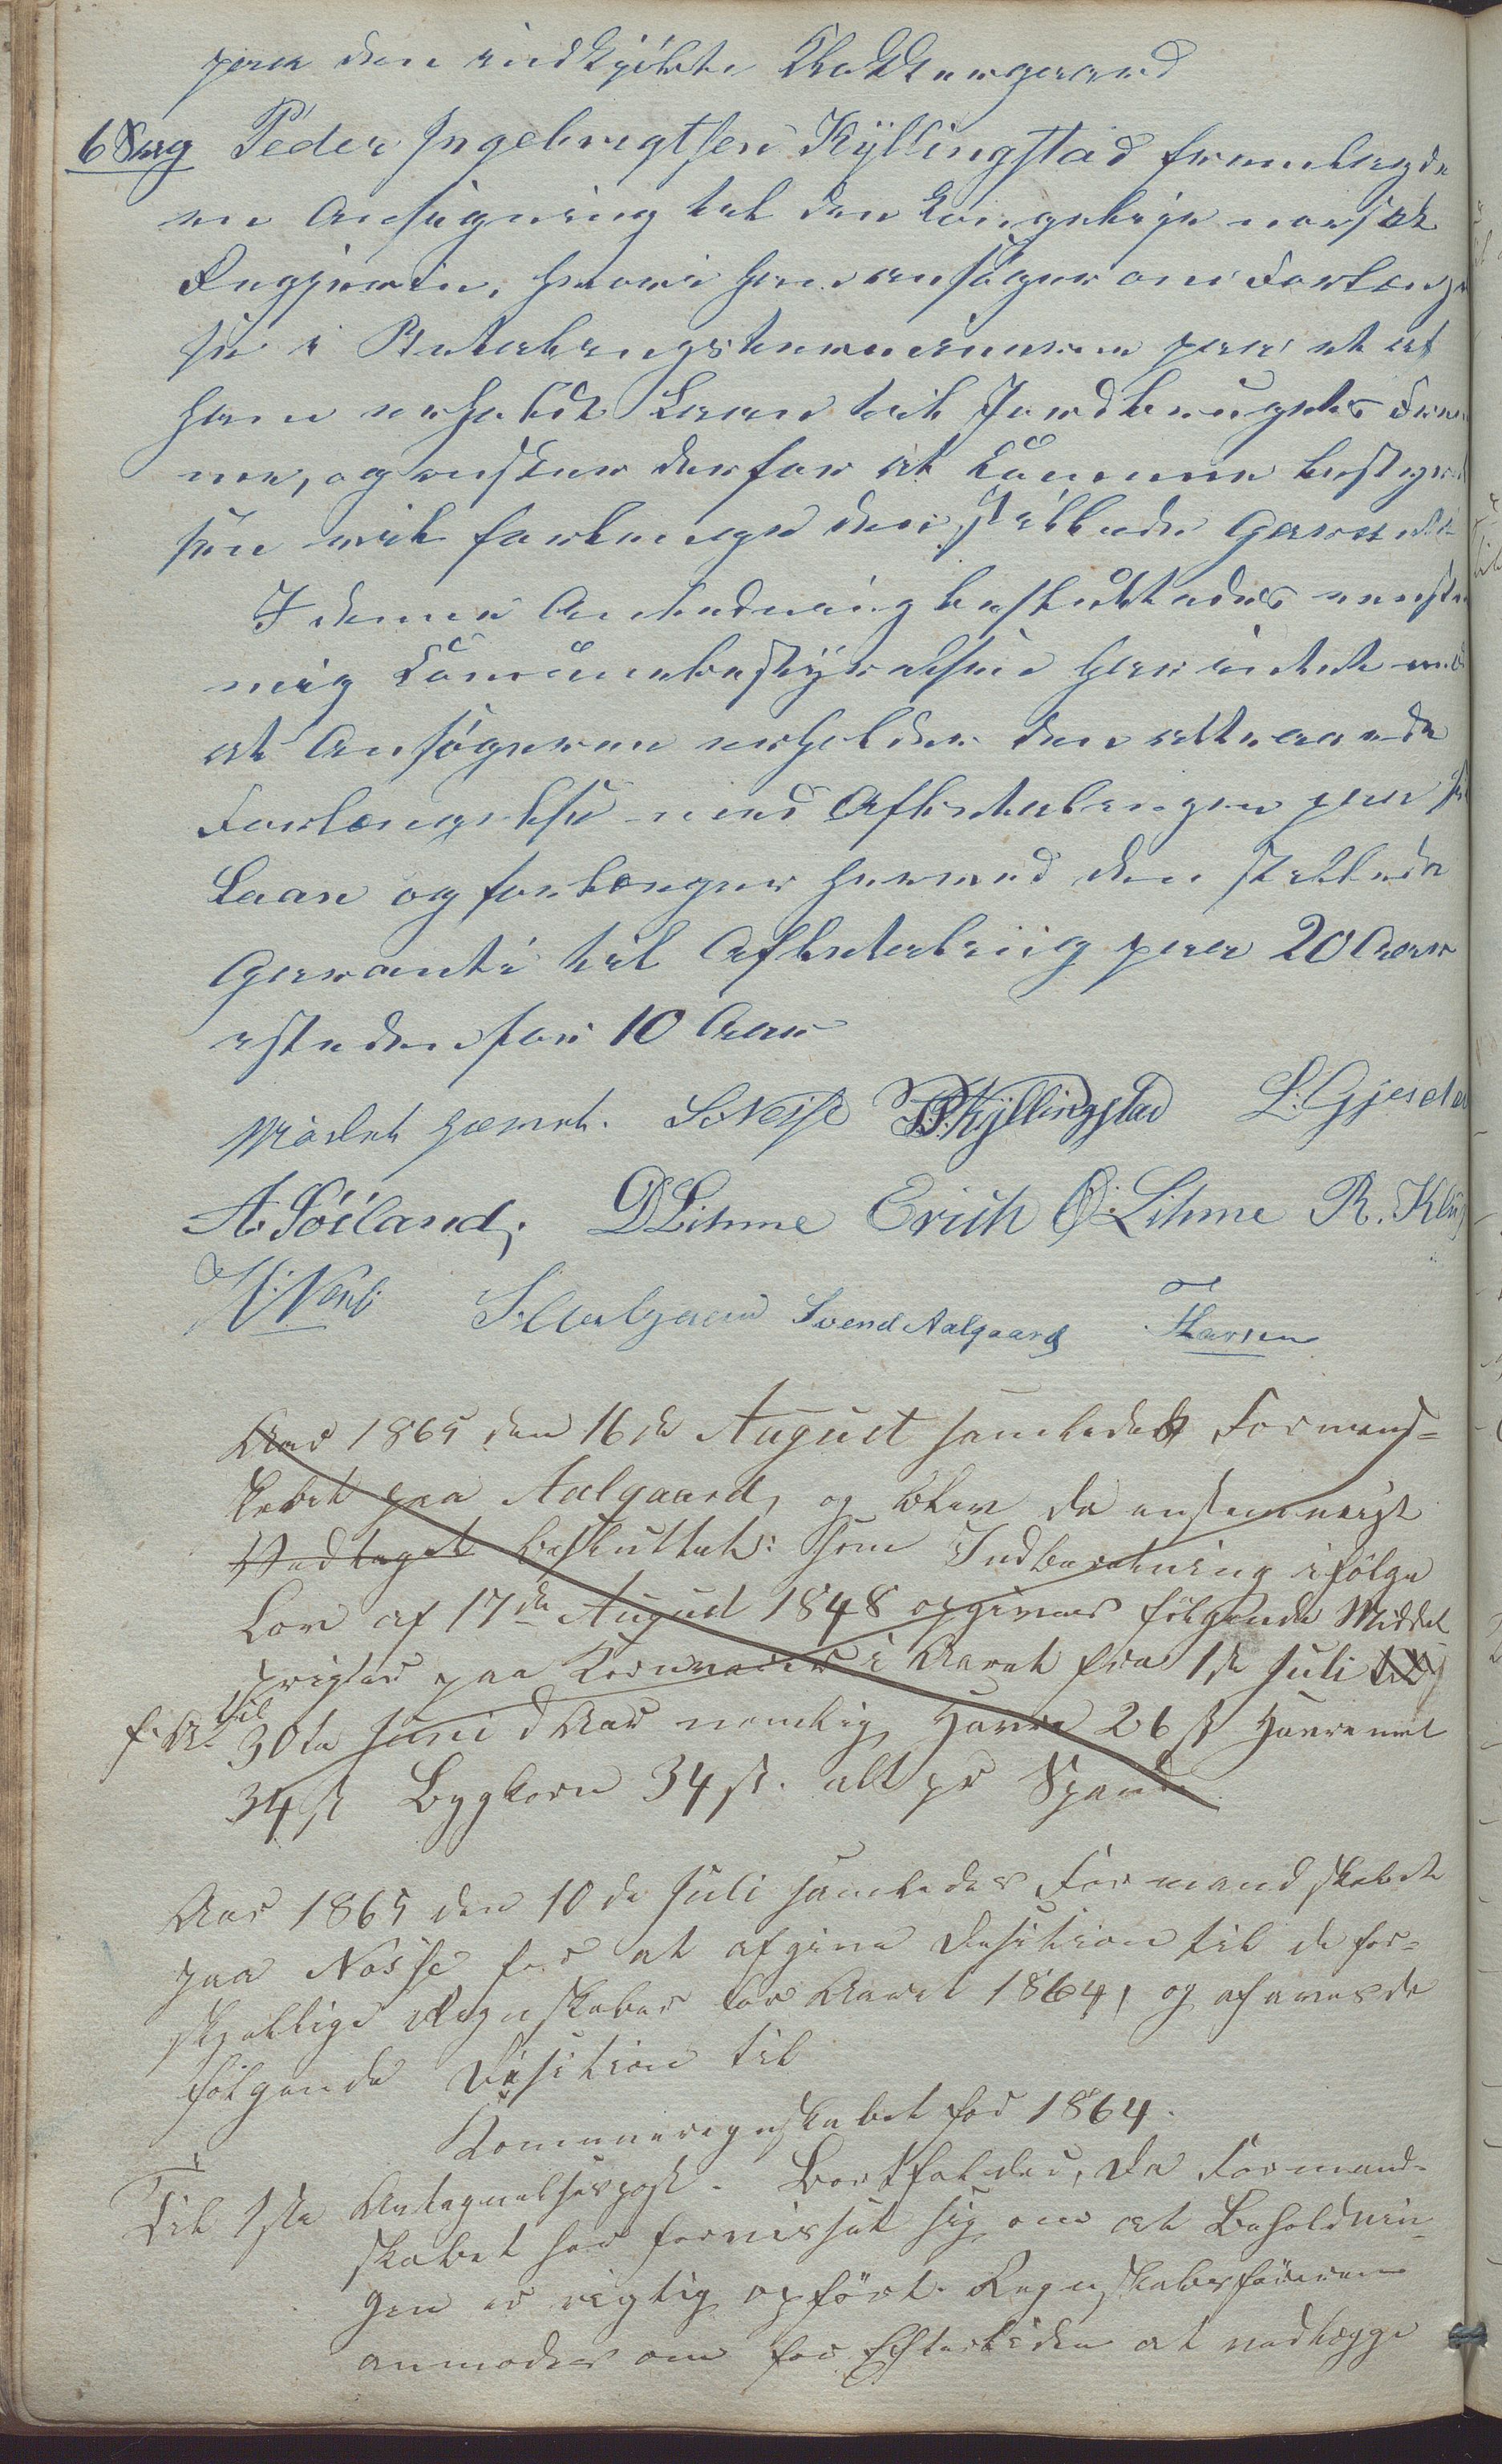 paa den indkjöbte Klokkergaard
6 Sag Peder Ingebrigtsen Kÿllingstad fremlagde
en Ansögning til den Kongelige norske
Regjering, hvori han ansöger om Forlænge
se i Betalingsterminerne paa et af
ham erholdt Laan til Jordbrugets Frem
me, og ønsker derfor at Commune bestyrel
sen vil forlænge den stillede Garanti
I denne Anledning besluttedes eenstem
mig Communebestÿrelsen har intet mod
at Ansögeren erholder den attraaede
Forlængelse med Afbetalingen paa sit
Laan og forlænger hermed den stillede
Garanti til Afbetaling paa 20 Aar
istedenfor 10 Aar
Mödet hævet. S. Nesse P. Kÿllingstad L. Gjesdal
A. Söiland, D Limme Erich O. Limme R. Klug
S. Aalgaard Svend Aalgaard T. Larsen
Aar 1865 den 16de August samledes Formand=
skabet paa Aalgaard, og blev da enstemmigt
Vedtaget besluttet: som Indberetning ifölge
Lov af 17de August 1848 opgives fölgende Middel
prigser paa Kornvarer i Aaret fra 1de Juli
f. A. til 30te Juni d Aar nemlig Havre 26 ß Havremel
34 ß Bygkorn 34 ß. alt pr Spand
Aar 1865 den 10de Juli samledes Formandskabet
paa Nesse for at afgive Desition til de for=
skjellige Regnskaber for Aaret 1864, og afgaves de
fölgende Desition til
Komuneregnskabet for 1864.
Til 1ste Antegnelsespost. Bortfalder, da Formand-
skabet har forvisset sig om at Beholdnin-
gen er rigtig opfört. Regnskabsföreren
anmodes om for Eftertiden at vedlægge